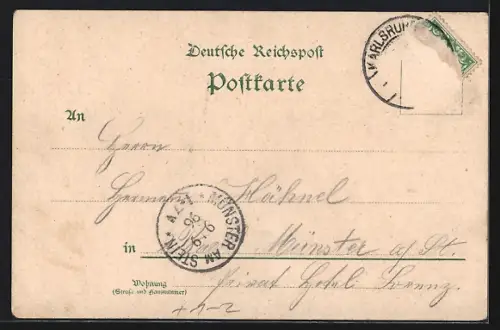 Deutsche Reichspost
KARLSRUHE
Postkarte
An
Herrn
Hermann Hähnel
MÜNSTER AM STEIN
in Münster a/St.
Wohnung
(Straße und Hausnummer)
Privat Hotel Lorenz